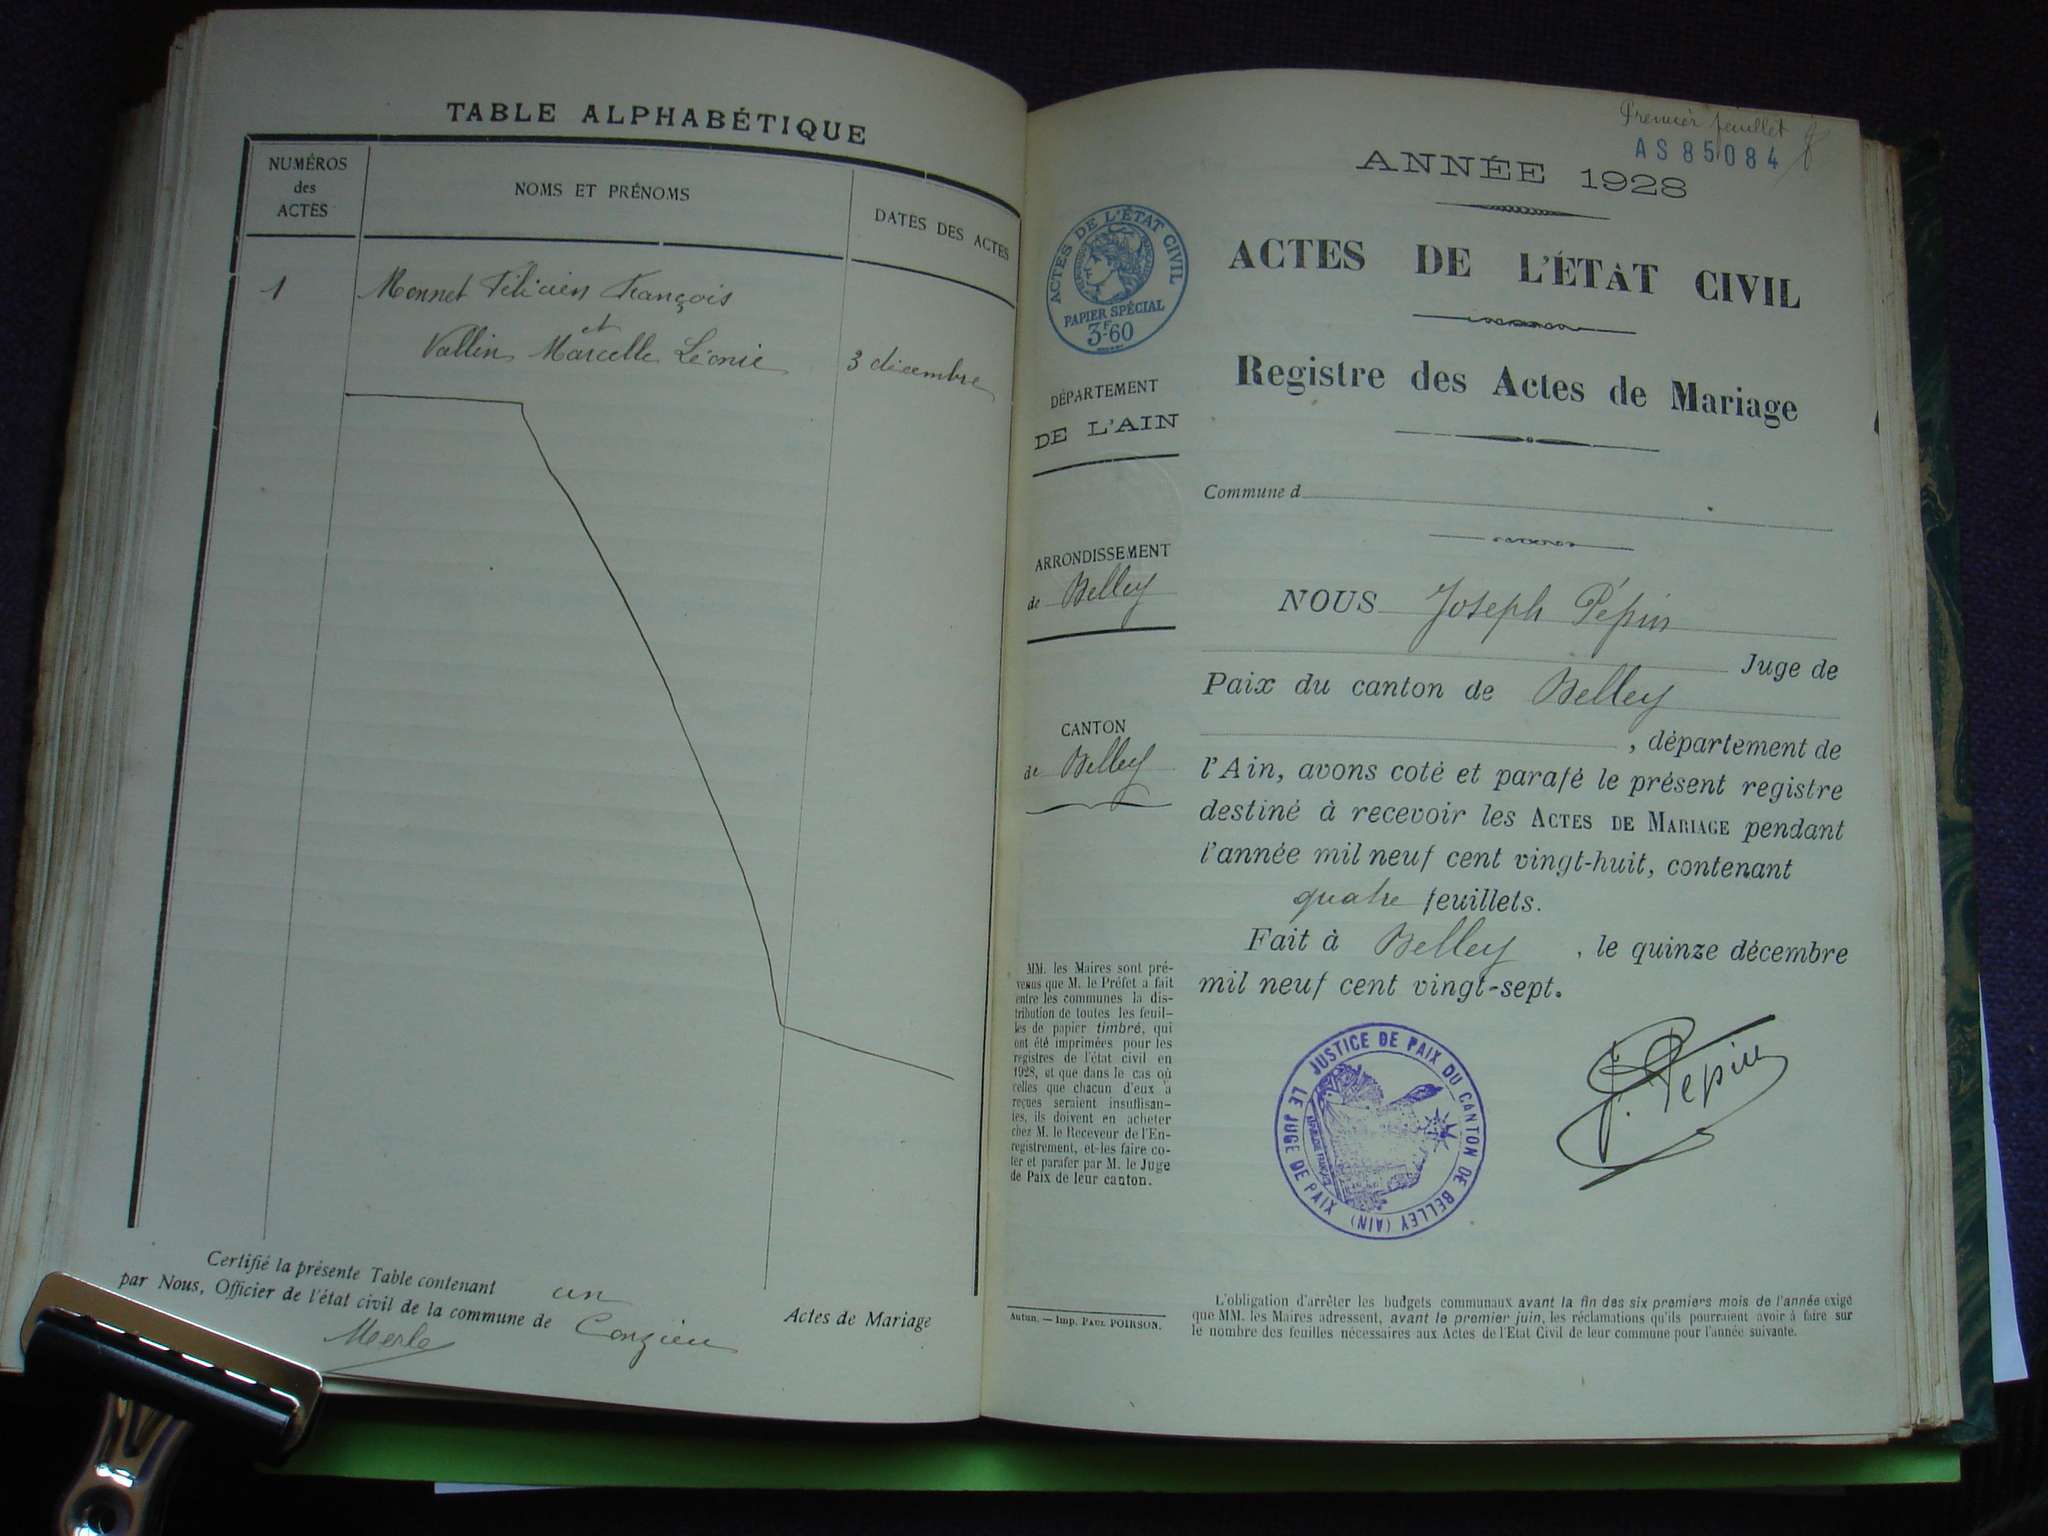 TABLE ALPHABÉTIQUE
NUMÉROS
des
ACTES
NOMS ET PRÉNOMS
DATES DES ACTES
1
Monnet Félicien François
et
Vallin Marcelle Léonie
3 décembre
Certifié la présente Table contenant un Actes de Mariage
par Nous, Officier de l'état civil de la commune de Conzieu
Merle
Premier feuillet
AS 85084
ANNÉE 1928
ACTES DE L'ÉTAT CIVIL
PAPIER SPÉCIAL
3F60
ACTES DE L'ÉTAT CIVIL
Registre des Actes de Mariage
DÉPARTEMENT
DE L'AIN
Commune d
ARRONDISSEMENT
de Belley
CANTON
de Belley
NOUS Joseph Pépin
Juge de
Paix du canton de Belley
, département de
l'Ain, avons coté et parafé le présent registre
destiné à recevoir les ACTES DE MARIAGE pendant
l'année mil neuf cent vingt-huit, contenant
quatre feuillets.
Fait à Belley, le quinze décembre
mil neuf cent vingt-sept.
MM. les Maires sont pré-
venus que M. le Préfet a fait
entre les communes la dis-
tribution de toutes les feuil-
les de papier timbré, qui
ont été imprimées pour les
registres de l'état civil en
1928, et que dans le cas où
celles que chacun d'eux a
reçues seraient insuffisan-
tes, ils doivent en acheter
chez M. le Receveur de l'En-
registrement, et les faire co-
ter et parafer par M. le Juge
de Paix de leur canton.
JUSTICE DE PAIX DU CANTON DE BELLEY (AIN)
LE JUGE DE PAIX
J. Pepin
Autun. — Imp. PAUL POIRSON.
L'obligation d'arrêter les budgets communaux avant la fin des six premiers mois de l'année exige
que MM. les Maires adressent, avant le premier juin, les réclamations qu'ils pourraient avoir à faire sur
le nombre des feuilles nécessaires aux Actes de l'Etat Civil de leur commune pour l'année suivante.